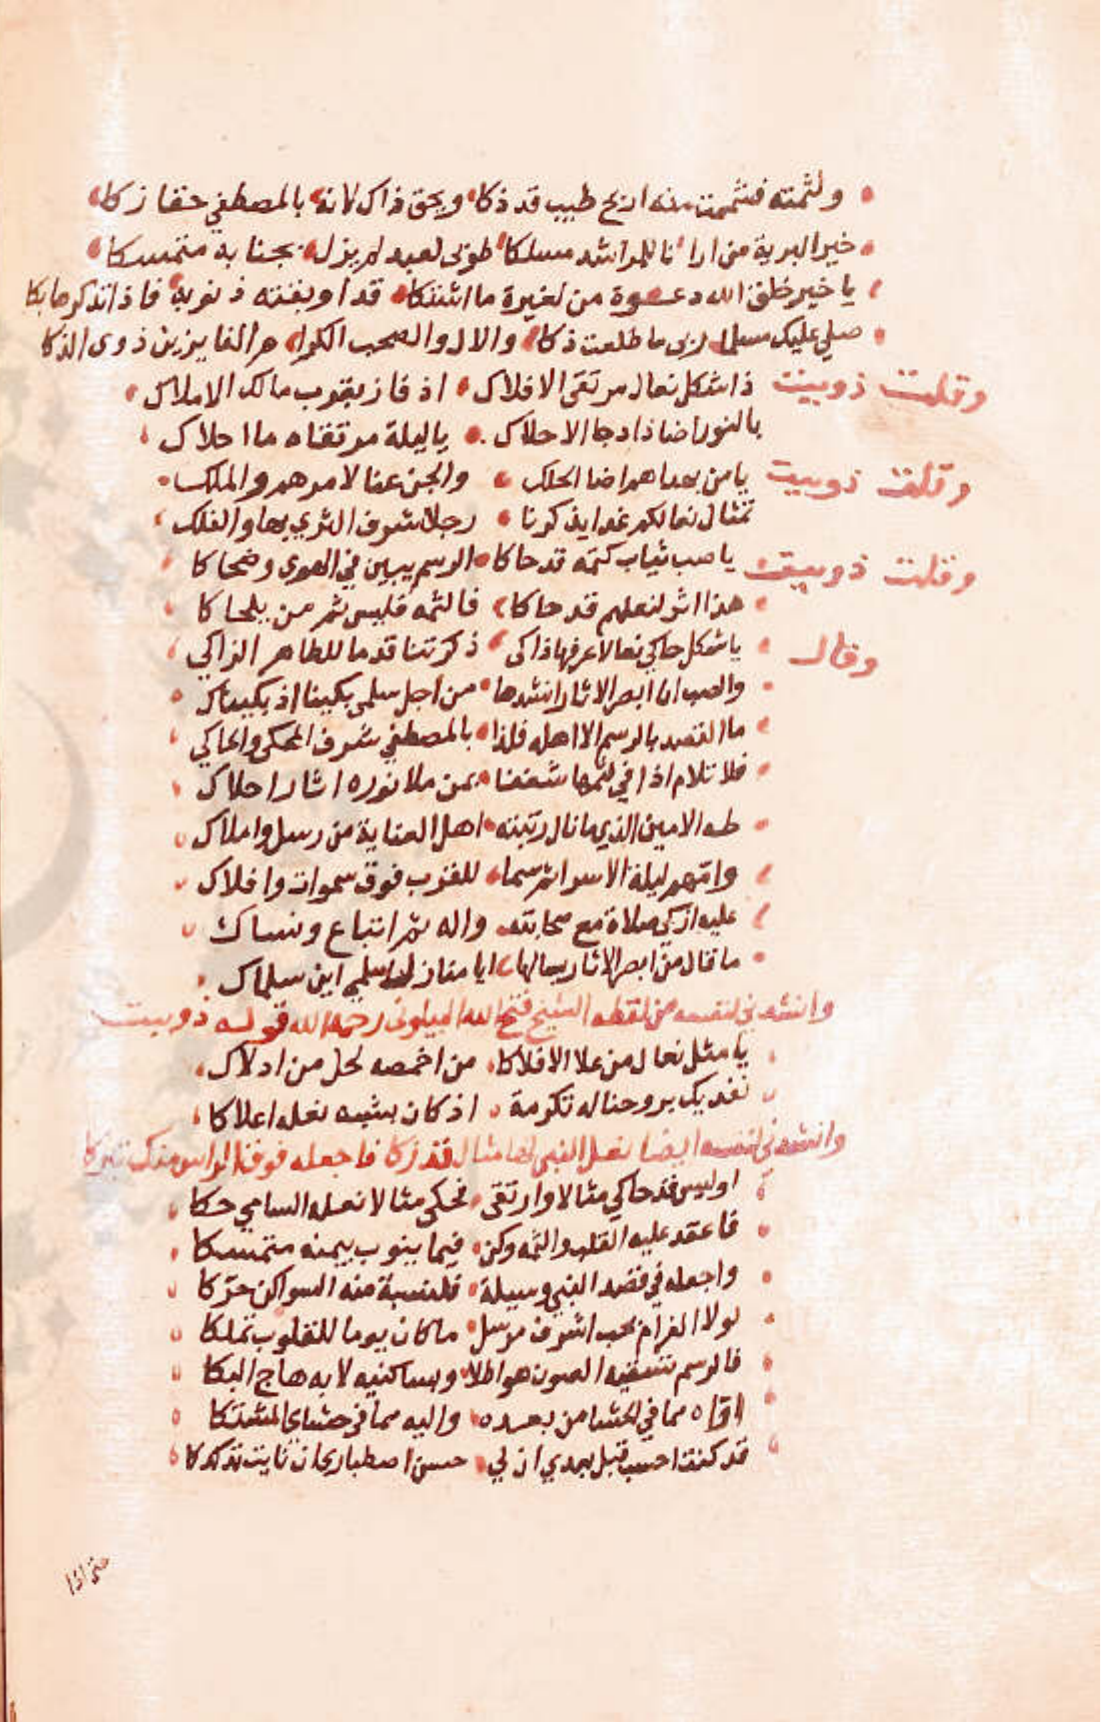 ولثمته فشممت منه اريح طيب قد ذكا ويحق ذاك لانه بالمصطفي حقا زكا
خير البرية من ارا نا للمراشد مسلكا طوبى لعبد لم يزل بجنابه متمسكا
يا خير خلق الله دعوة من لغيرك ما اشتكا قد اوبقته ذنوبه فاذا تذكرها بكا
صلي عليك مسلما ربى ما طلعت ذكا والال والصحب الكرام هم الفايزين ذوى الذكا
وقلت ذوبيت ذا شكل نعال مرتقى الافلاك اذ فاز بقرب مالك الاملاك
بالنور اضا ذا دجا الاحلاك يا ليلة مرتقاه ما احلاك
وقلت ذوبيت يا من بهداهم اضا الحلك والجن عنا لامرهم والملك
تمثال نعالكم غدا يذكرنا رجلا شرف الثري بها والفلك
وقلت ذوبيت يا صب ثياب كتمه قد حاكا الرسم يبين في الهوى وضحاكا
هذا اثر لنعلهم قد حاكا فالثمه فليس ثم من يلحاكا
وقال يا شكل حاكي نعالا عرفها ذاكى ذكرتنا قدما للطاهر الزاكي
والصب ان ابصر الاثار انشدها من اجل سلمى بكينا اذ بكيناك
ما القصد بالرسم الا اهله فلذا بالمصطفي شرف المحكى والحاكي
فلا تلام اذا في لثمها شغفنا بمن ملا نوره اشار احلاك
طه الامين الذي ما نال رتبته اهل العناية من رسل واملاك
وامهم ليلة الاسرا ثم سما للقرب فوق سموات وافلاك
عليه ازكى صلاة مع صحابته واله ثم اتباع ونساك
ما قال من ابصر الاثار يسالها ايا منازل سلمي اين سلماك
وانشدني لنفسه من لفظه الشيخ فتح الله البيلوني رحمه الله قوله ذوبيت
يا مثل نعال من علا الافلاكا من اخمصه لحل من ادلاك
نفديك بروحنا له تكرمة اذ كان بشبه نعله اعلاكا
وانشدني لنفسه ايضا نعل النبي لها مثال قد زكا فاجعله فوق الراس منك تبركا
اوليس قد حاكي مثالا وارتقى فحكى مثالا نعله السامي حكا
فاعقد عليه القلب والثمه وكن فيما ينوب بيمنه متمسكا
واجعله في قصد النبي وسيلة فلنسبة منه السواكن حركا
لولا الغرام بحب اشرف مرسل ما كان يوما للقلوب تملكا
فالرسم تسقيه العيون هواطلا وبساكنيه لا به هاج البكا
اواه مما في الحشا من بعده واليه مما في حشاي المشتكا
قد كنت احسب قبل بعدي ان لي حسن اصطبار حان نايت تدكدكا
حتى اذا